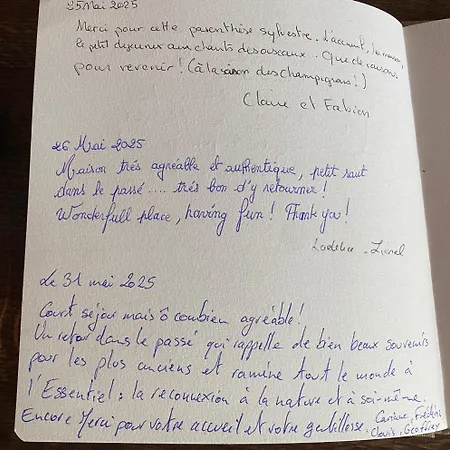 25 Mai 2025
Merci pour cette parenthèse sylvestre. L'accueil, la maison,
le petit dejeuner aux chants des oiseaux. Que de raisons
pour revenir ! (à la saison des champignons !)
Claire et Fabien
26 Mai 2025
Maison très agréable et authentique, petit saut
dans le passé .... très bon d'y retourner !
Wonderfull place, having fun ! Thank you !
Lionel
Le 31 mai 2025
Court séjour mais ô combien agréable !
Un retour dans le passé qui rappelle de bien beaux souvenirs
pour les plus anciens et ramène tout le monde à
l'Essentiel : la reconnexion à la nature et à soi-même.
Encore Merci pour votre accueil et votre gentillesse.
Corinne, Frédéric
Clovis, Geoffrey